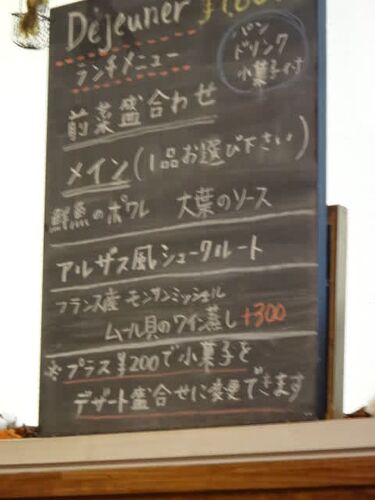 Déjeuner
パン
ドリンク
小菓子付
ランチメニュー
前菜盛合わせ
メイン(1品お選び下さい)
鮮魚のポワレ 大葉のソース
アルザス風シュークルート
フランス産 モンサンミッシェル
ムール貝のワイン蒸し +300
※プラス¥200で小菓子を
デザート盛合せに変更できます